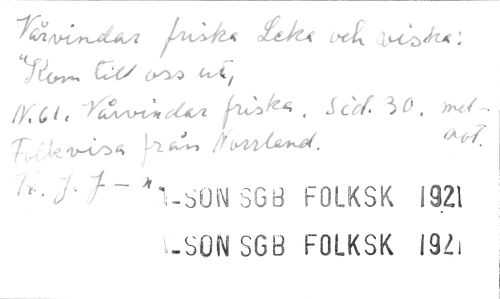 Vårvindar friska Leka och viska:
"Kom till oss ut,
N. 61. Vårvindar friska. Sid. 30. mel-
Folkvisa från Norrland. not.
J. J – n.
LSON SGB FOLKSK 1921
LSON SGB FOLKSK 1921